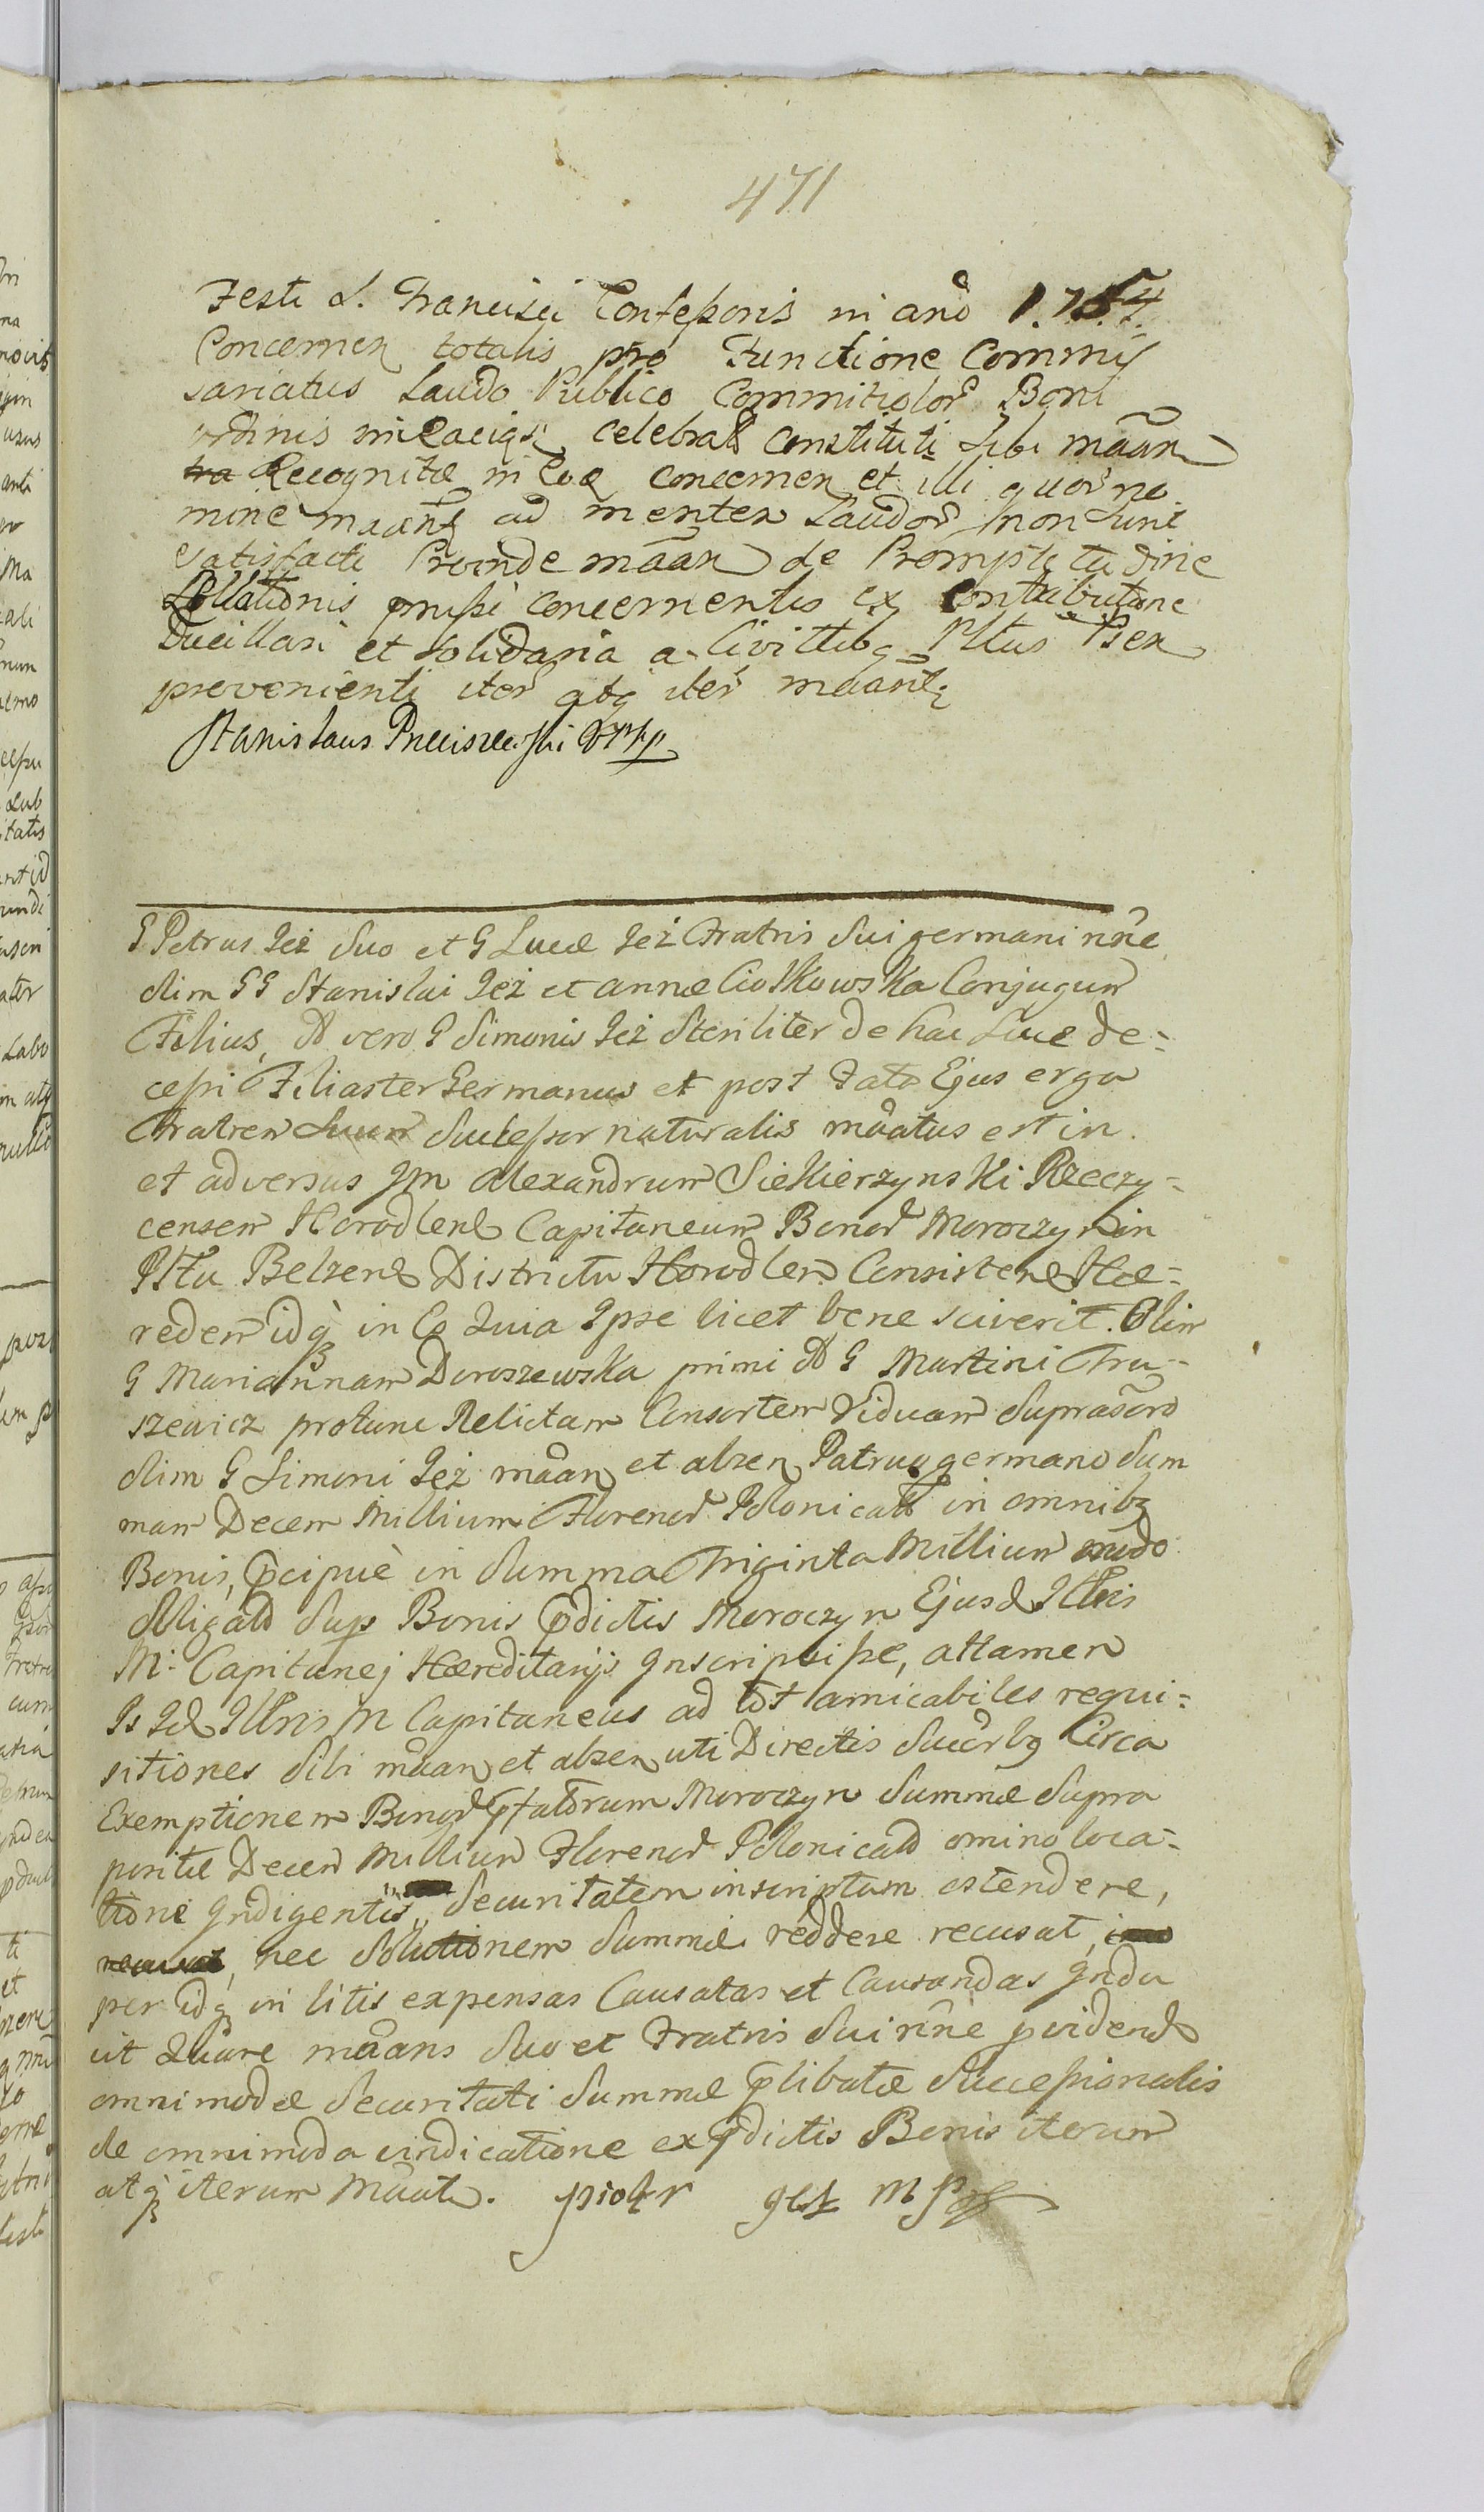 471
Festi S. Francisci Confessoris in anõ 1.754.
Concernen totalis pro Functione Commis
sariatus Laudo Publico Commitiolor Boni
ordinis celebrat constituti sibi mãan
Recognitæ in Coe concernen et illi quor no
mine mãant ad menten Laudor non sunt
satisfacti Proinde mãan de Promptitudine
Sollationis pmissi concernentis ex Contributione
Ducillari et solidaria a Civittibq Plttus Bsen
provenienti iter atq iter mãant
Stanislaus
G Petrus Jeż suo et G Lucæ Jeż Fratris sui germani nñe
olim GG Stanislai Jeż et annæ Ciołkowska Conjugum
Filius, A vero G Simonis Jeż Steriliter de hac Luce de=
cessi Filiaster Germanus et post Fata Ejus erga
Fratrem Suum Successor naturalis mãatus est in
et adversus Jm Alexandrum Siekierzynski Rzeczy=
censem Horodlens Capitaneum Bonor Moroczyn in
Plttu Belzens Districtu Horodlen Consistens Hæ=
redem idq in Eo Quia Ipse licet bene sciverit. Olim
G Mariannam Doroszewska primi A G Martini Tru=
szewicz protunc Relictam Consortem Viduam Suprascro
olim G Simoni Jeż mãan et absen Patruo germano Sum
mam Decem Millium Florenor Polonicalt in omnibq
Bonis, pcipuè in Summa Triginta Millium modo
obligato Sup Bonis pdictis Moroczyn Ejusd Illris
M. Capitanej Hæreditarijs Inscripsisse, attamen
Is Id Illris M Capitaneus ad tot amicabiles requi=
sitiones Sibi mãan et absen uti Directis Succrbq Circa
Exemptionem Bonor pfatorum Moroczyn Summæ Supra
positæ Decem Millium Florenor Polonical omino loca=
tione Indigentis in Securitatem inscriptam ostendere,
nec Solutionem Summæ reddere recusat,
per idq in litis expensas Causatas et Causandas Indu
it Quare mãans Suo et Fratris Sui nñe pvidend
omnimodæ Securitati Summæ plibatæ Successionalis
de omnimoda vindicatione ex pdictis Bonis iterum
atq iterum Mãat. piotr gesz mp